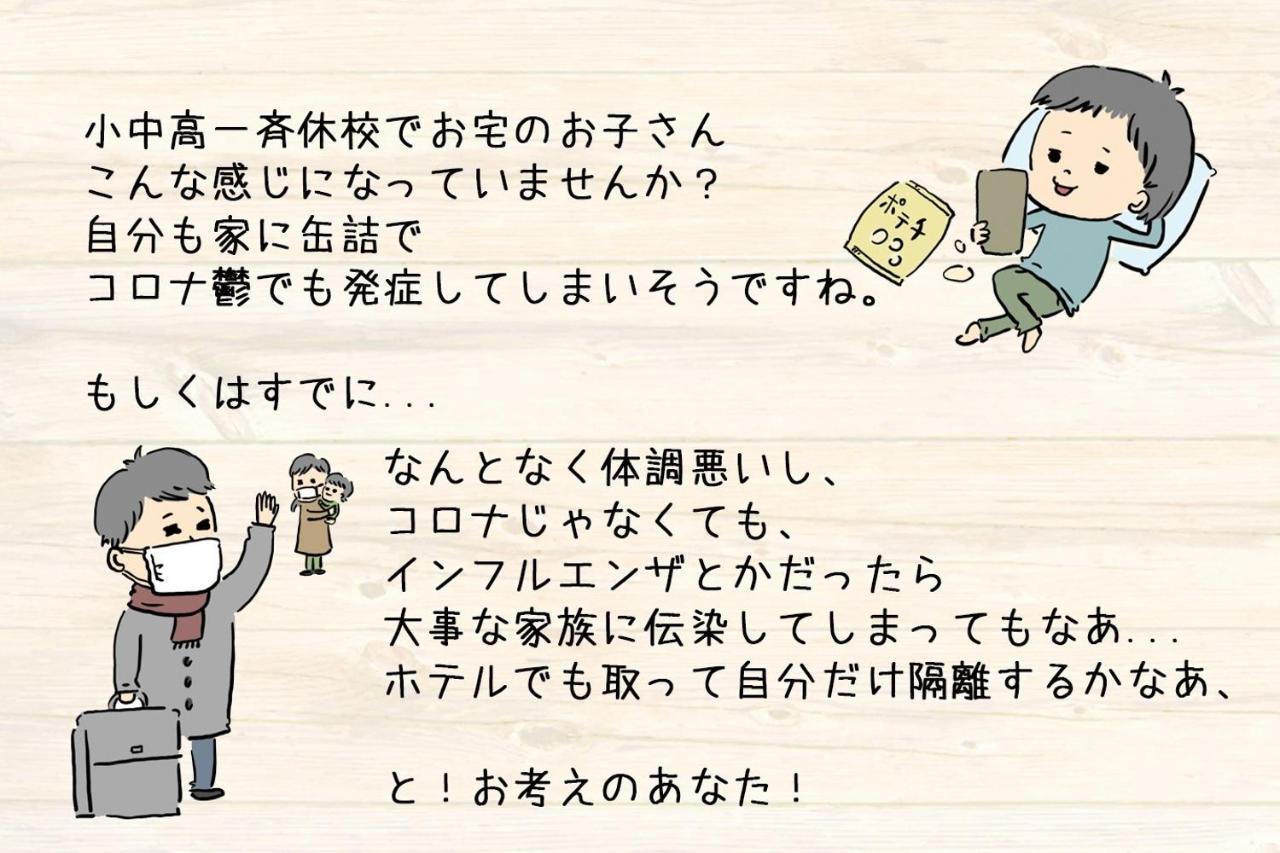 小中高一斉休校でお宅のお子さん
こんな感じになっていませんか？
自分も家に缶詰で
コロナ鬱でも発症してしまいそうですね。
ポテチ
もしくはすでに...
なんとなく体調悪いし、
コロナじゃなくても、
インフルエンザとかだったら
大事な家族に伝染してしまってもなあ...
ホテルでも取って自分だけ隔離するかなあ、
と！お考えのあなた！